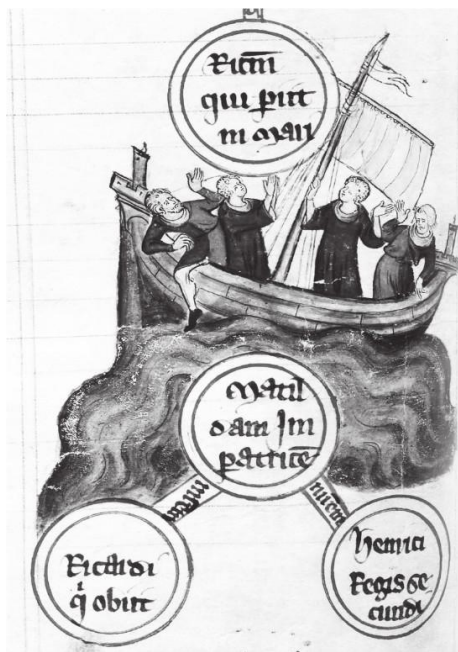 qui piit
in mari
Matil
dam Im
patricē
Ricardi
qͥ obiit
henrici
Regis se
cundi